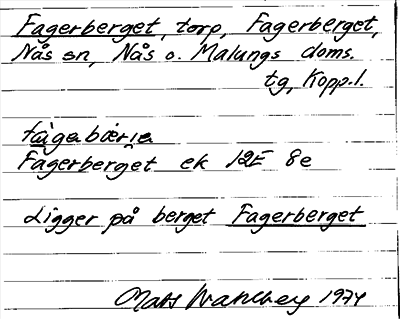 Fagerberget, torp, Fagerberget,
Nås sn, Nås o. Malungs doms.
tg, Kopp. l.
fàgabæria
Fagerberget ek 12E 8e
Ligger på berget Fagerberget
Mats Wahlberg 1974